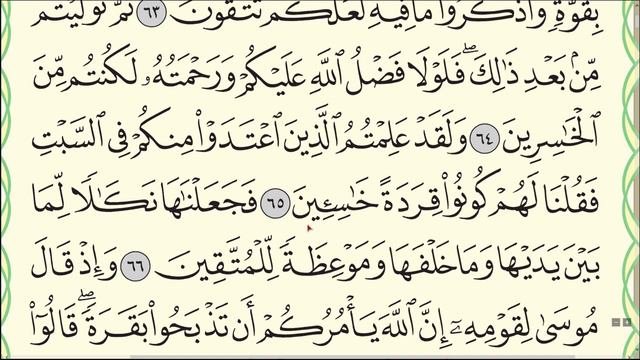 بِقُوَّةٍ وَٱذْكُرُوا۟ مَا فِيهِ لَعَلَّكُمْ تَتَّقُونَ ٦٣ ثُمَّ تَوَلَّيْتُم
مِّنۢ بَعْدِ ذَٰلِكَ ۖ فَلَوْلَا فَضْلُ ٱللَّهِ عَلَيْكُمْ وَرَحْمَتُهُۥ لَكُنتُم مِّنَ
ٱلْخَٰسِرِينَ ٦٤ وَلَقَدْ عَلِمْتُمُ ٱلَّذِينَ ٱعْتَدَوْا۟ مِنكُمْ فِى ٱلسَّبْتِ
فَقُلْنَا لَهُمْ كُونُوا۟ قِرَدَةً خَٰسِـِٔينَ ٦٥ فَجَعَلْنَٰهَا نَكَٰلًا لِّمَا
بَيْنَ يَدَيْهَا وَمَا خَلْفَهَا وَمَوْعِظَةً لِّلْمُتَّقِينَ ٦٦ وَإِذْ قَالَ
مُوسَىٰ لِقَوْمِهِۦٓ إِنَّ ٱللَّهَ يَأْمُرُكُمْ أَن تَذْبَحُوا۟ بَقَرَةً ۖ قَالُوٓا۟